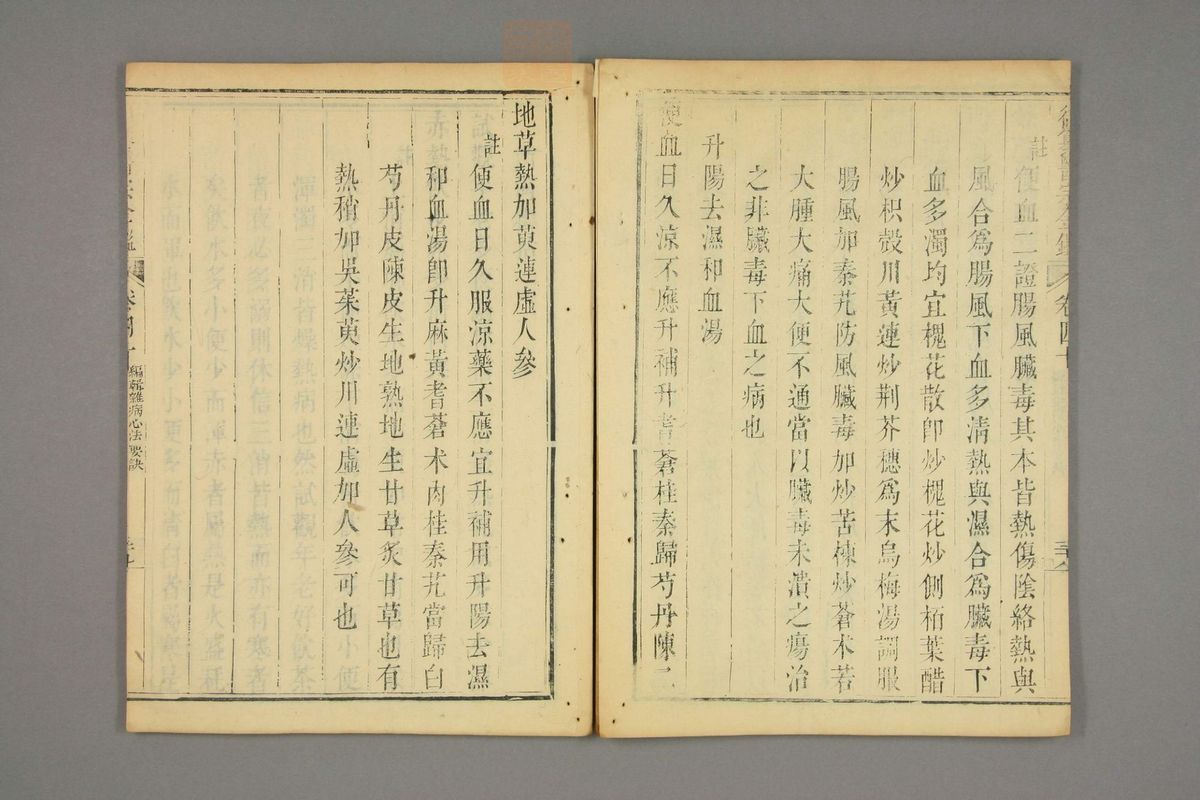 註便血二證腸風臟毒其本皆熱傷陰絡熱與
風合爲腸風下血多淸熱與濕合爲臟毒下
血多濁均宜槐花散卽炒槐花炒側栢葉醋
炒枳殼川黃連炒荆芥穗爲末烏梅湯調服
腸風加秦艽防風臟毒加炒苦楝炒蒼术若
大腫大痛大便不通當以臟毒未潰之瘍治
之非臟毒下血之病也
升陽去濕和血湯
便血日久涼不應升補升耆蒼桂秦歸芍丹陳二
卷四十
地草熱加萸連虛人參
註便血日久服涼藥不應宜升補用升陽去濕
和血湯卽升麻黃耆蒼术肉桂秦艽當歸白
芍丹皮陳皮生地熟地生甘草炙甘草也有
熱稍加吳茱萸炒川連虛加人參可也
編輯雜病心法要訣